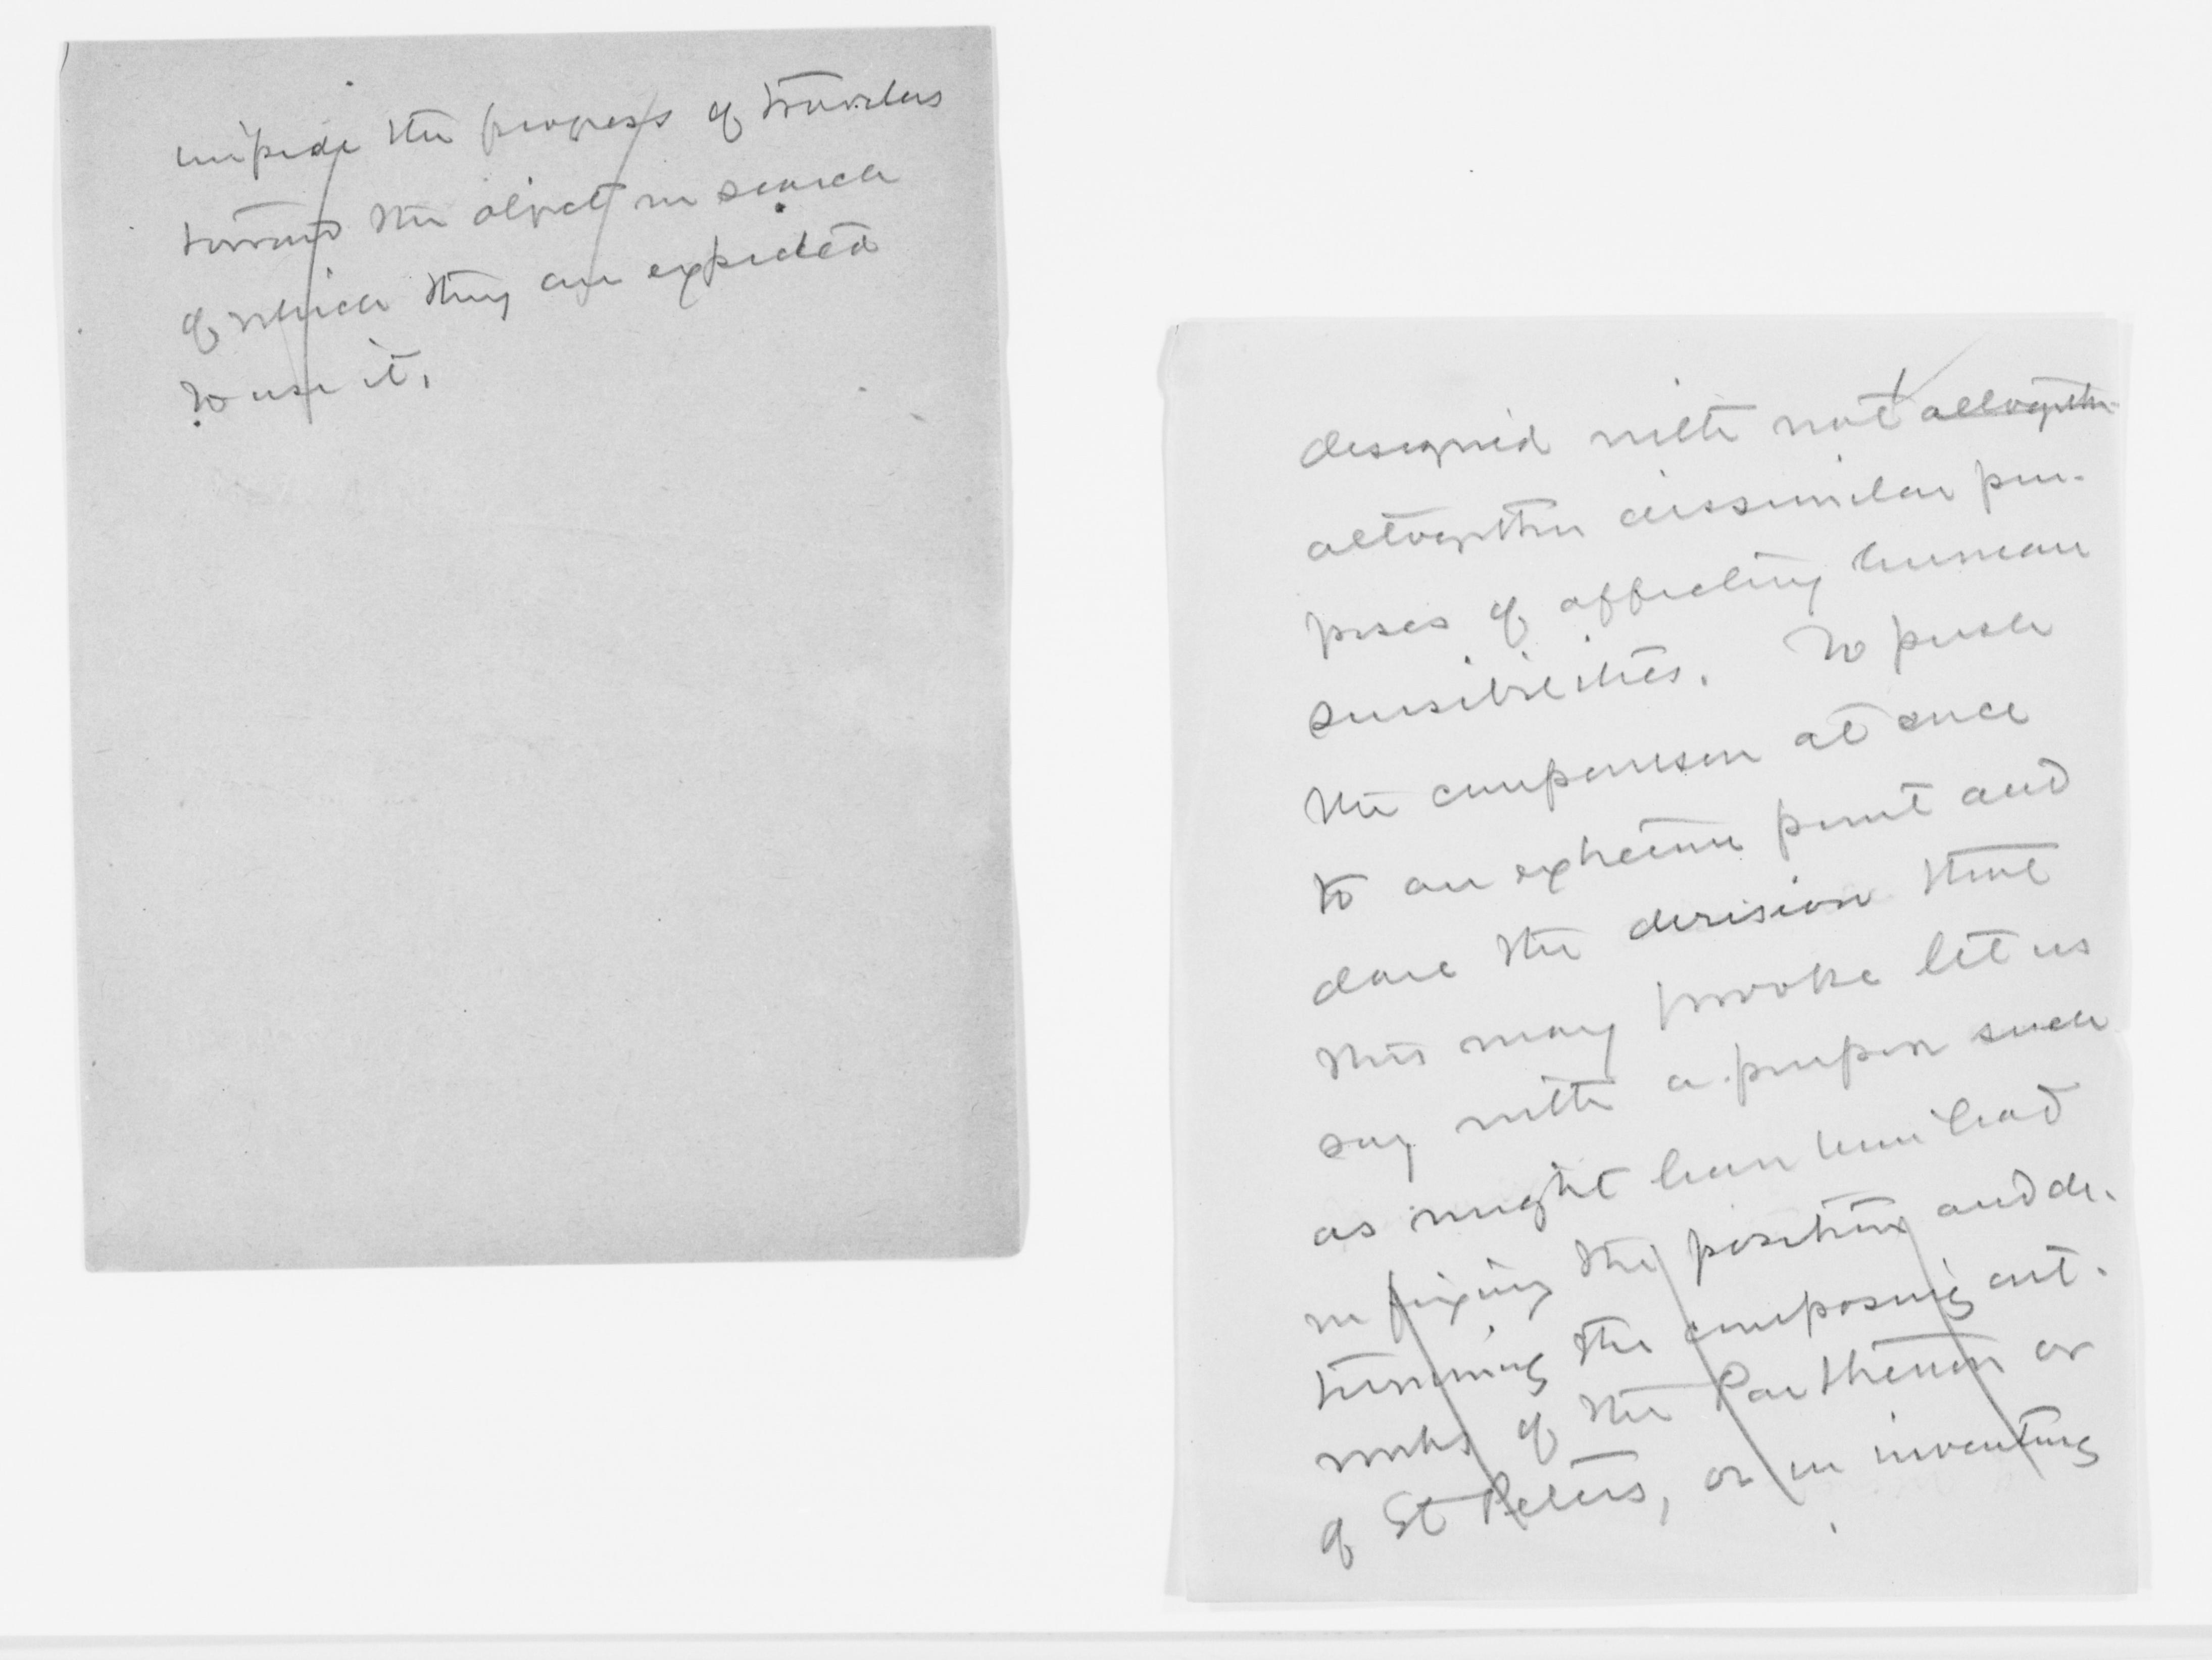 impede the progress of travelers
toward the object in search
of which they are expected
to use it.
designed with not altogether
altogether dissimilar pur-
poses of affecting human
sensibilities. To push
the comparison at once
to an extreme point and
dare the derision that
this may provoke let us
say with a purpose such
as might have been had
in fixing the position and de-
termining the composing art-
works of the Parthenon or
of St Peters, or in inventing